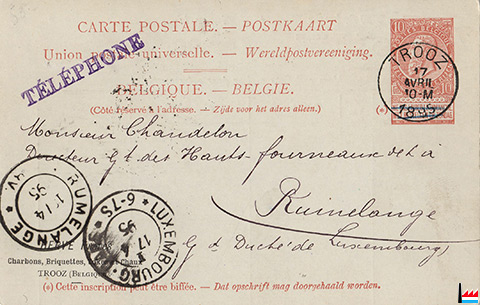 CARTE POSTALE. — POSTKAART
Union postale universelle. — Wereldpostvereeniging.
TÉLÉPHONE
BELGIQUE. — BELGIE.
(Côté réservé à l'adresse. — Zijde voor het adres alleen.)
10
10
TROOZ
17
AVRIL
10-M
1895
Monsieur Chandelon
Directeur Gt des Hauts-fourneaux de & à
Rumelange
Gd Duché de Luxembourg
RUMELANGE
95
LUXEMBOURG-
6-7S
17
95
Charbons, Briquettes,
TROOZ (Belgique)
(*) Cette inscription peut être biffée. — Dat opschrift mag doorschaald worden.